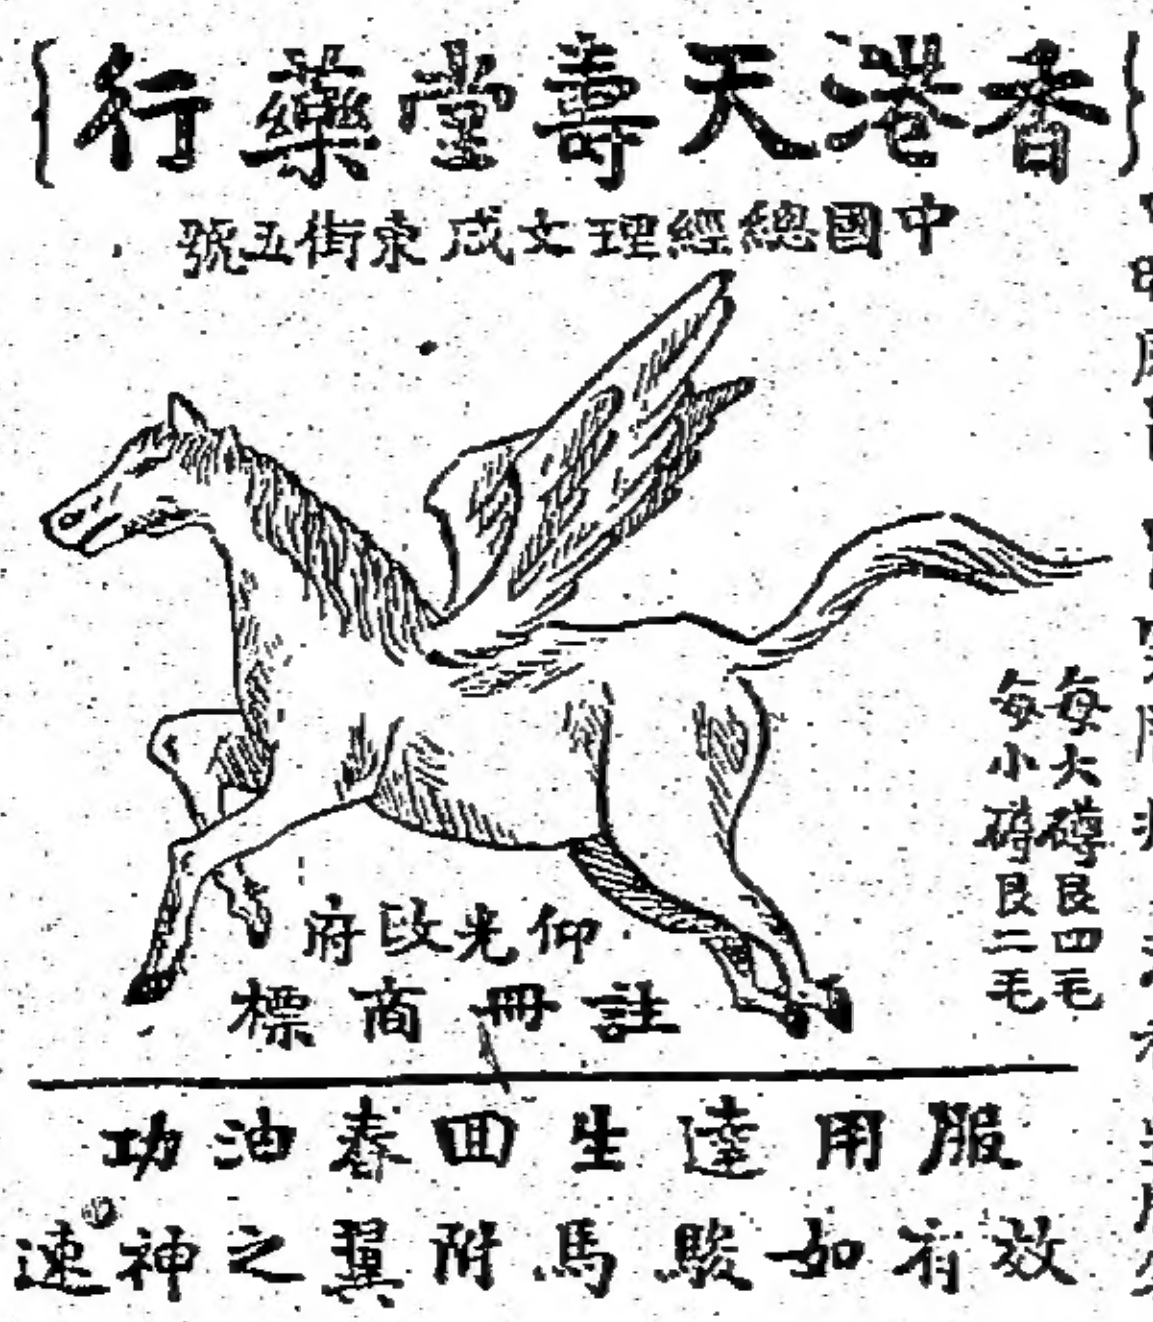 香港天壽堂藥行
中國總經理文咸東街五號
每大罇艮四毛
每小罇艮二毛
仰光政府
註冊商標
服用達生回春油功
效有如駿馬附翼之神速